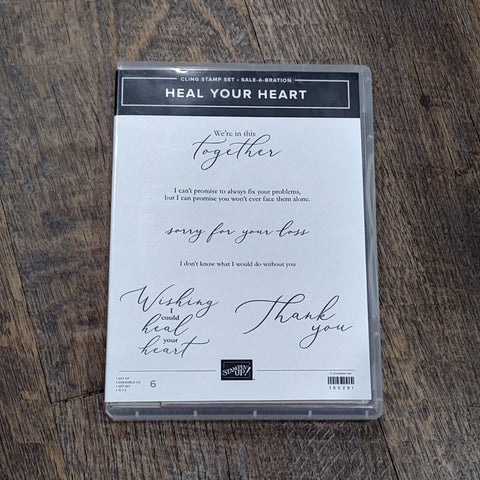 CLING STAMP SET • SALE-A-BRATION
HEAL YOUR HEART
We're in this
together
I can't promise to always fix your problems,
but I can promise you won't ever face them alone.
sorry for your loss
I don't know what I would do without you
Wishing
I
could
heal
your
heart
Thank
you
STAMPIN' UP!
6